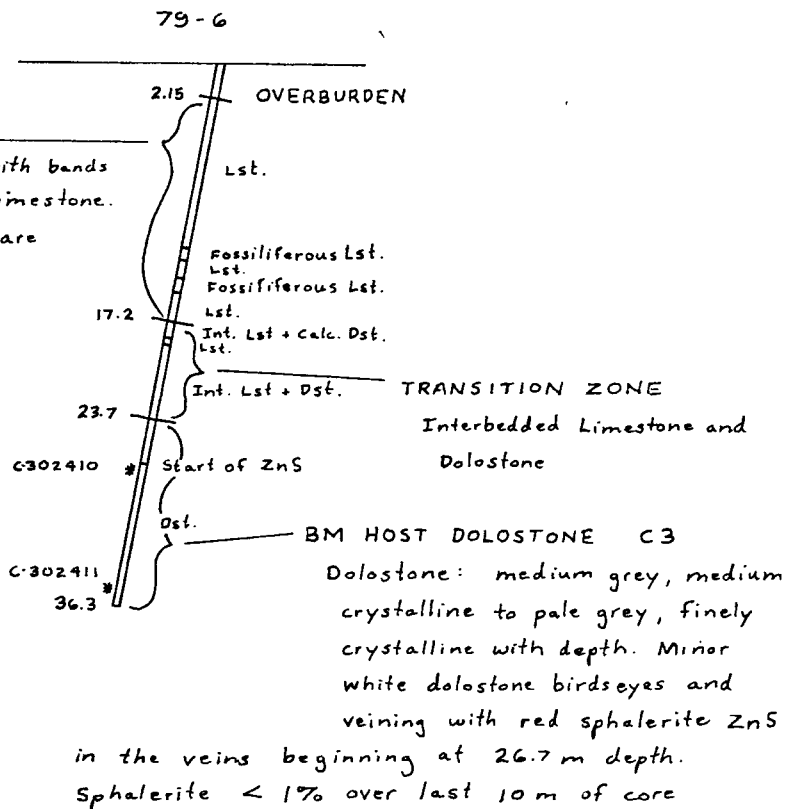 79-6
2.15 OVERBURDEN
ith bands
imestone.
are
Lst.
Fossiliferous Lst.
Lst.
Fossiliferous Lst.
Lst.
17.2
Int. Lst + Calc. Dst.
Lst.
Int. Lst + Dst.
TRANSITION ZONE
Interbedded Limestone and
Dolostone
23.7
C-302410 * Start of ZnS
Dst.
BM HOST DOLOSTONE C3
Dolostone: medium grey, medium
crystalline to pale grey, finely
crystalline with depth. Minor
white dolostone birdseyes and
veining with red sphalerite ZnS
in the veins beginning at 26.7 m depth.
Sphalerite < 1% over last 10 m of core
C-302411 *
36.3